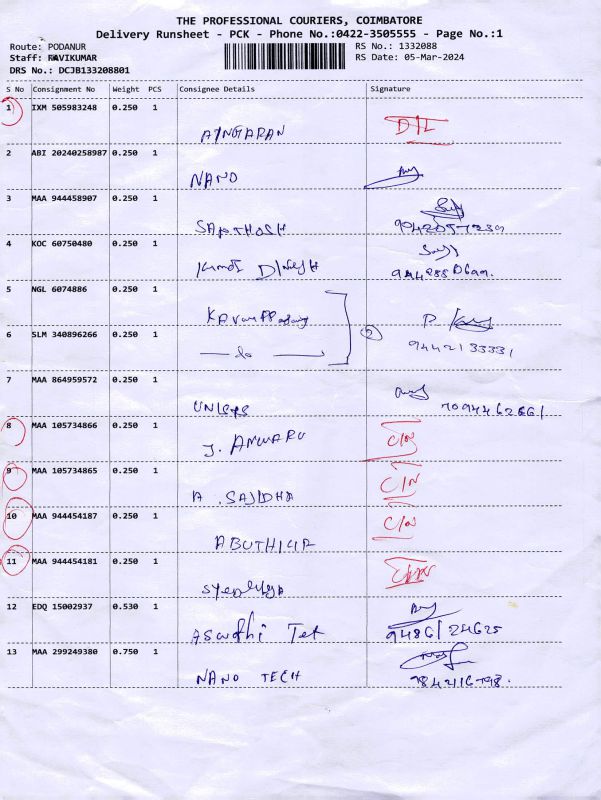 THE PROFESSIONAL COURIERS, COIMBATORE
Delivery Runsheet - PCK - Phone No.:0422-3505555 - Page No.:1
Route: PODANUR RS No.: 1332088
Staff: RAVIKUMAR RS Date: 05-Mar-2024
DRS No.: DCJB133208801
S No Consignment No Weight PCS Consignee Details Signature
1 IXM 505983248 0.250 1
AINGARAN D/L
2 ABI 20240258987 0.250 1
NANO
3 MAA 944458907 0.250 1
SANTHOSH
4 KOC 60750480 0.250 1
5 NGL 6074886 0.250 1
6 SLM 340896266 0.250 1
do 2 9442133331
7 MAA 864959572 0.250 1
7094462661
8 MAA 105734866 0.250 1
J. C/N
9 MAA 105734865 0.250 1
A. SAJIDHA C/N
10 MAA 944454187 0.250 1
C/N
11 MAA 944454181 0.250 1
12 EDQ 15002937 0.530 1
Aswathi Tex 9486124625
13 MAA 299249380 0.750 1
NANO TECH